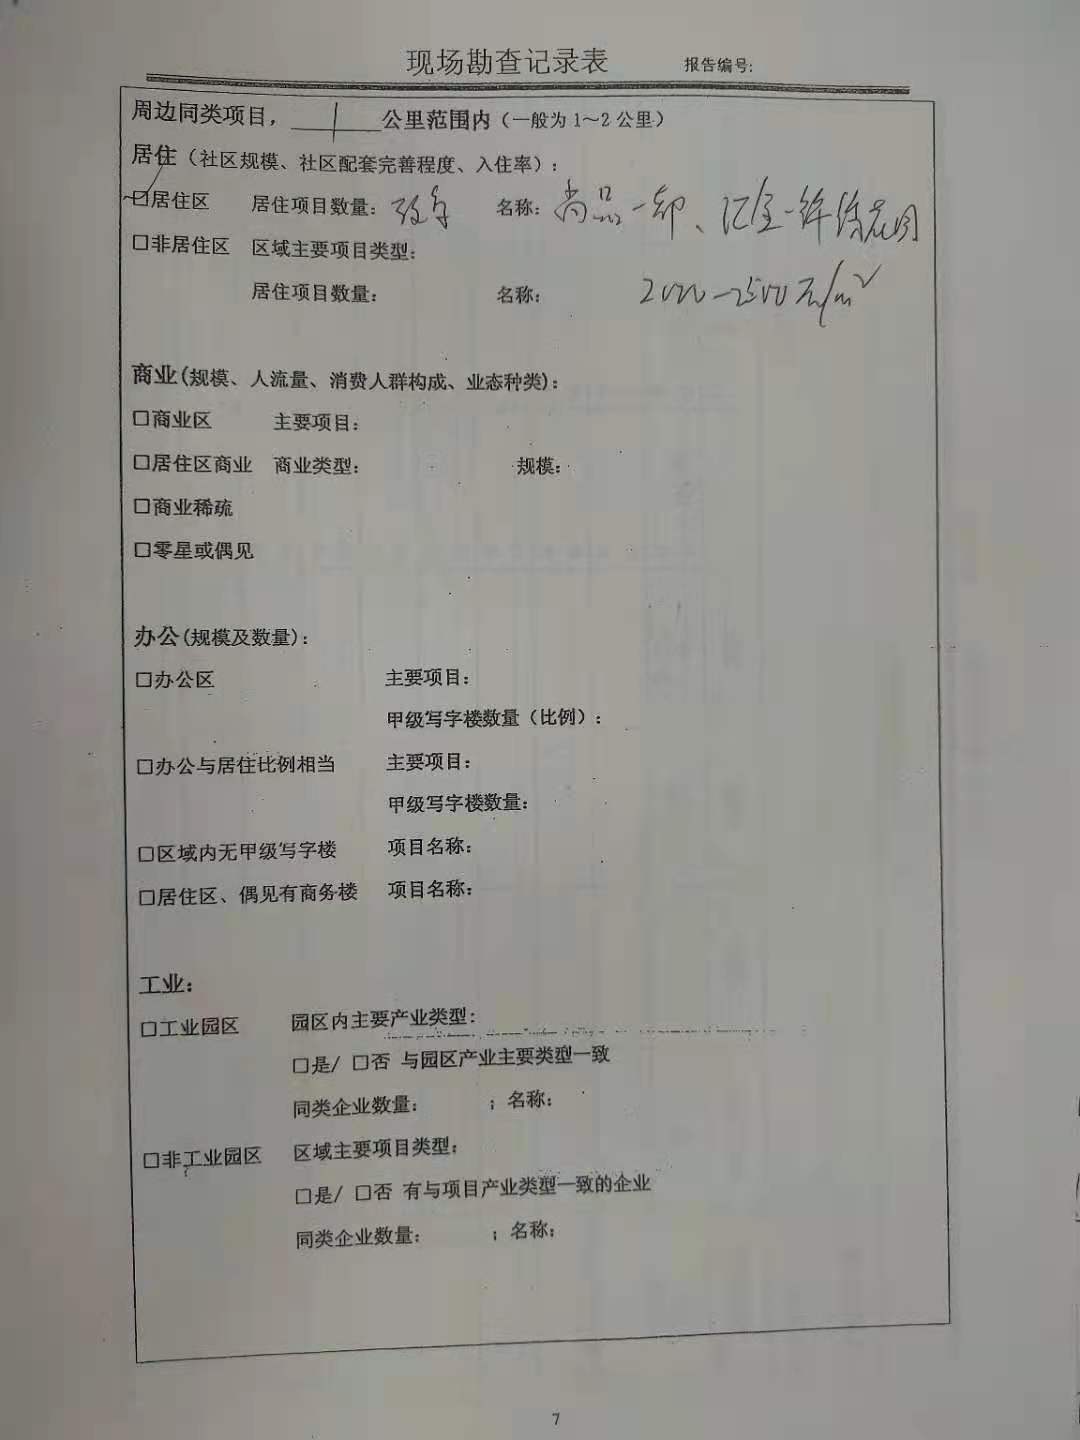 现场勘查记录表 报告编号:
周边同类项目, 1 公里范围内（一般为1～2公里）
居住（社区规模、社区配套完善程度、入住率）:
☑居住区 居住项目数量: 较多 名称: 尚品一邸、汇金一锦绣花园
□非居住区 区域主要项目类型:
居住项目数量: 名称: 2000-2500元/m²
商业(规模、人流量、消费人群构成、业态种类):
□商业区 主要项目:
□居住区商业 商业类型: 规模:
□商业稀疏
□零星或偶见
办公(规模及数量):
□办公区 主要项目:
甲级写字楼数量（比例）:
□办公与居住比例相当 主要项目:
甲级写字楼数量:
□区域内无甲级写字楼 项目名称:
□居住区、偶见有商务楼 项目名称:
工业:
□工业园区 园区内主要产业类型:
□是/ □否 与园区产业主要类型一致
同类企业数量: ；名称:
□非工业园区 区域主要项目类型:
□是/ □否 有与项目产业类型一致的企业
同类企业数量: ；名称:
7